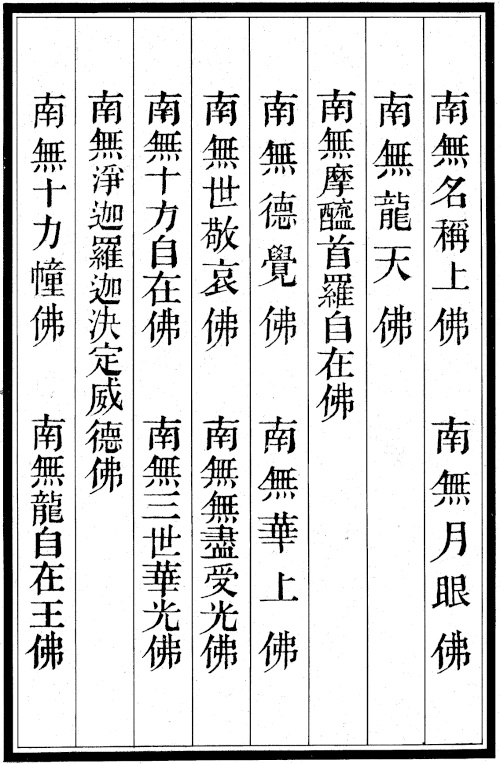 南無名稱上佛　南無月眼佛
南無龍天佛
南無摩醯首羅自在佛
南無德覺佛　南無華上佛
南無世敬哀佛　南無無盡受光佛
南無十方自在佛　南無三世華光佛
南無淨迦羅迦決定威德佛
南無十力幢佛　南無龍自在王佛